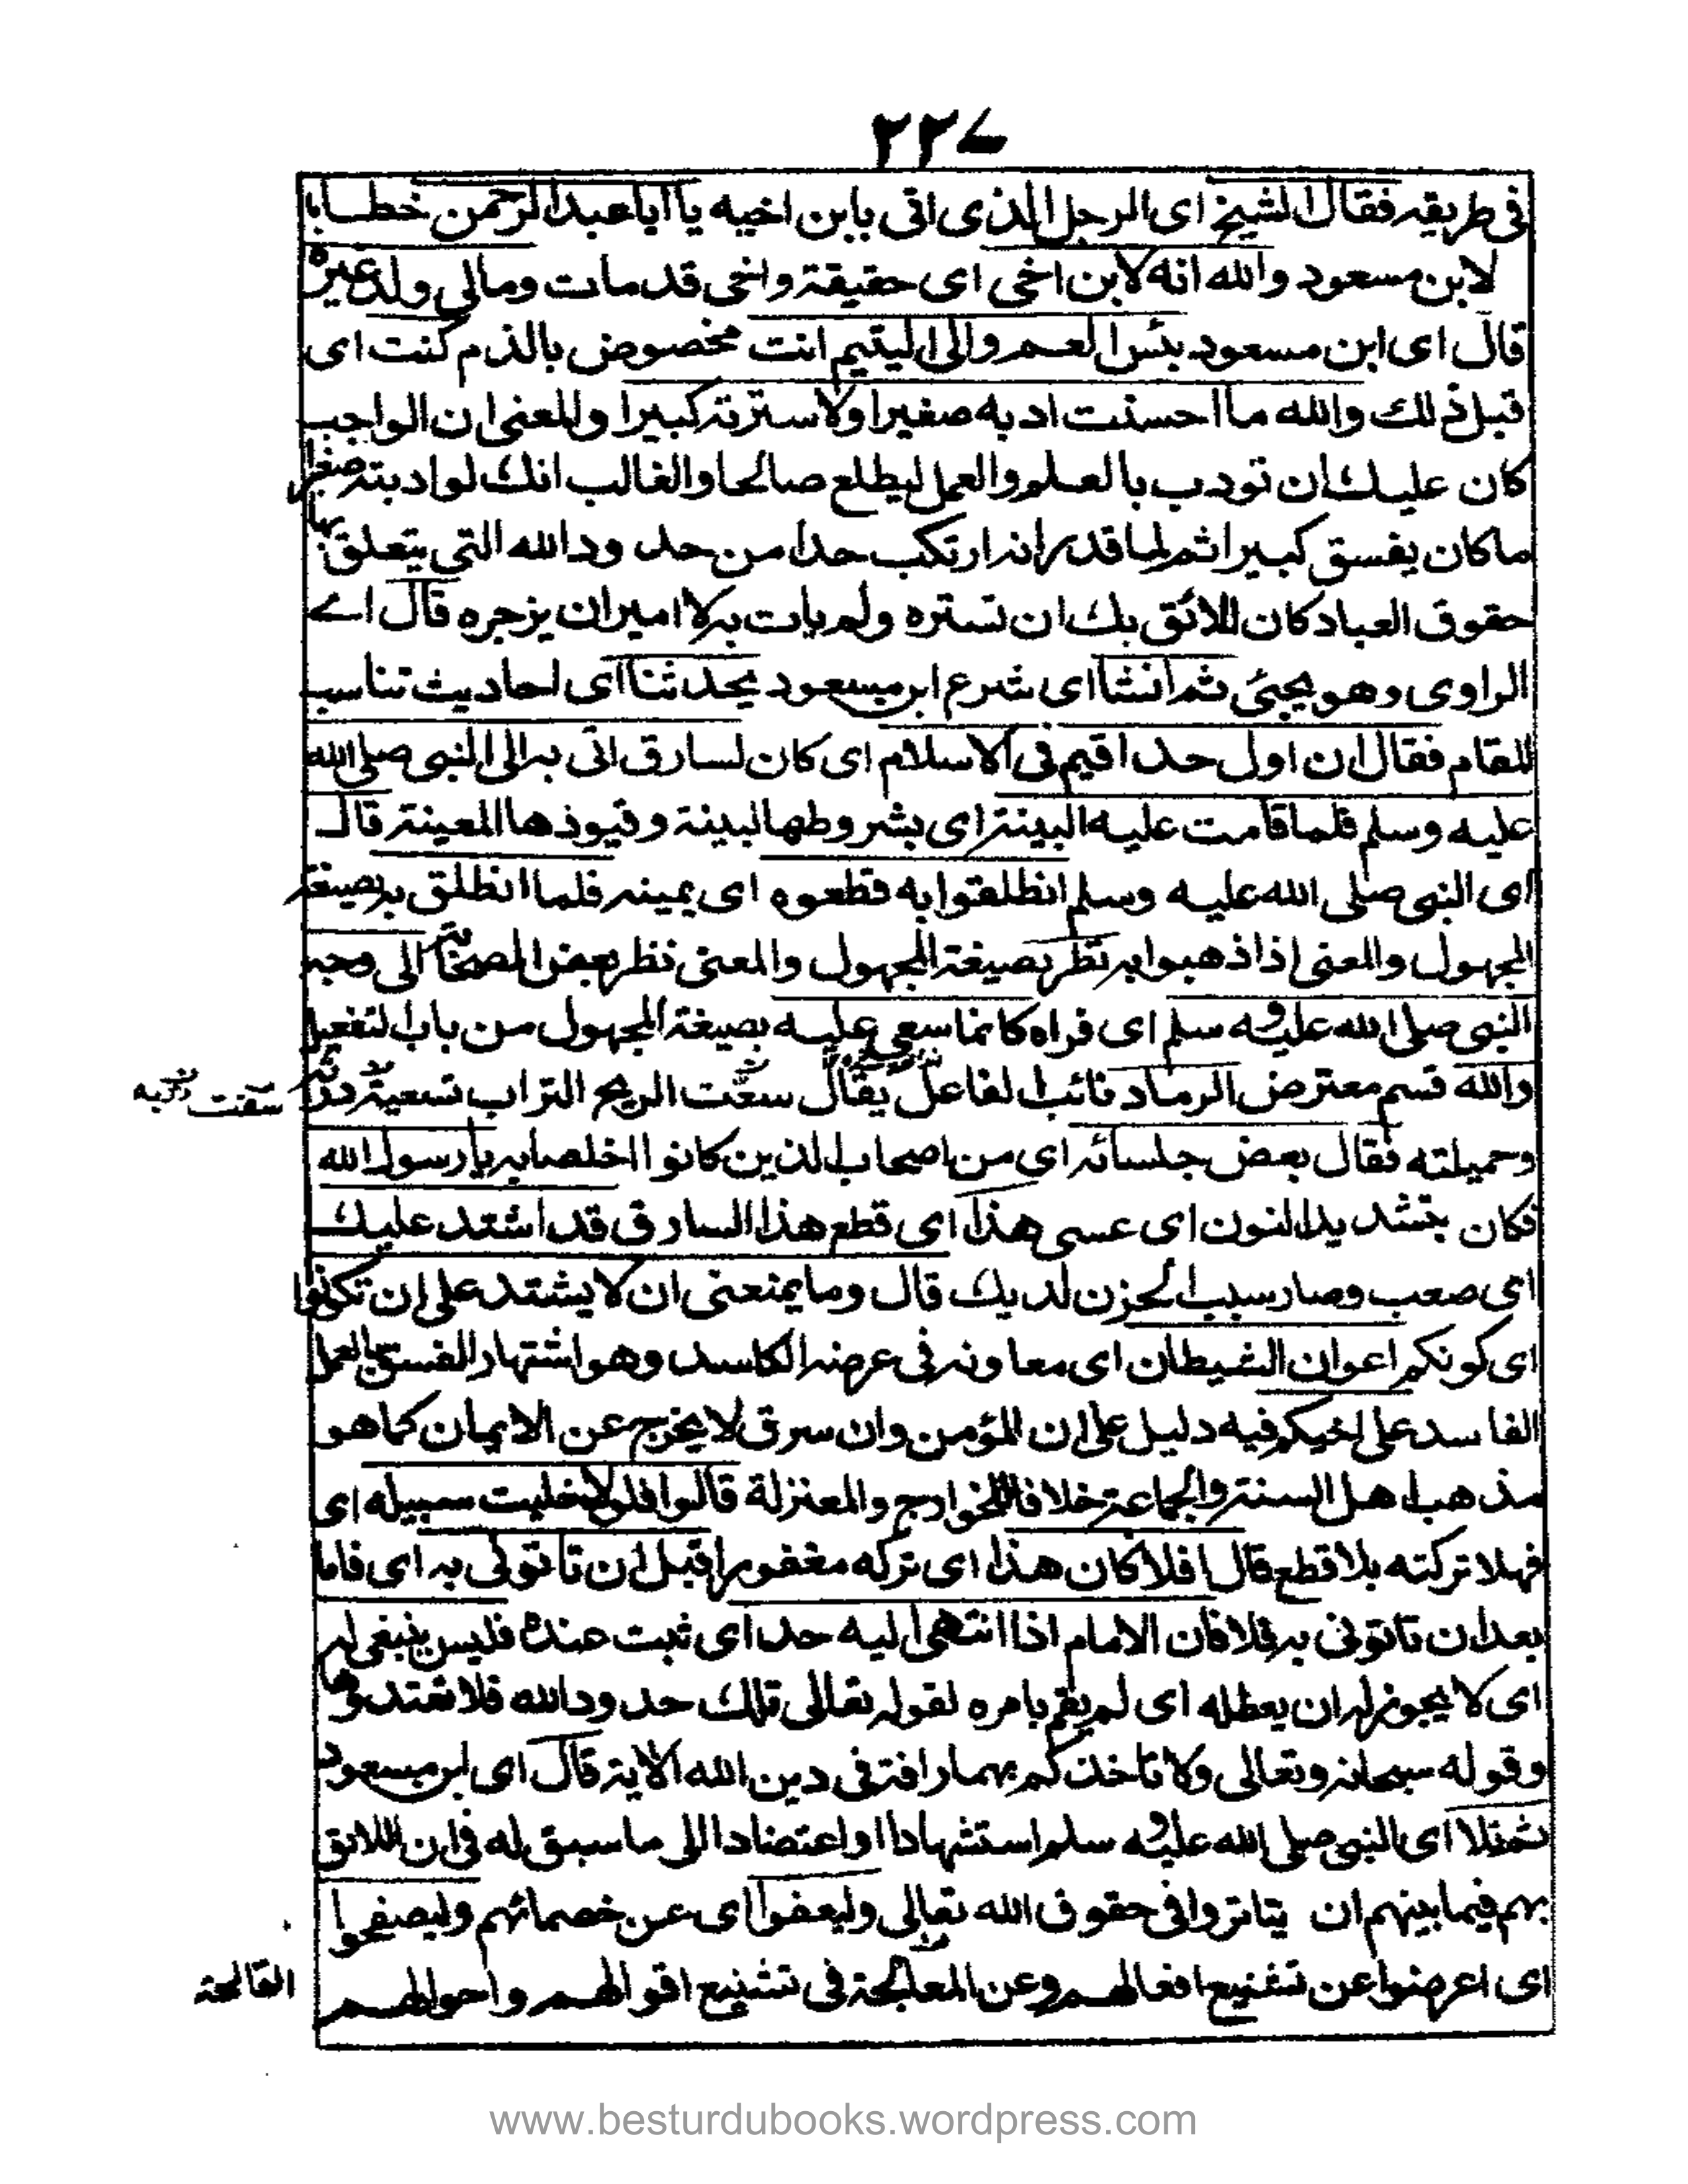 ٢٢٧
فی طریقہ فقال الشیخ ای الرجل الذی اتی بابن اخیہ یا ابا عبدالرحمن خطابا
لابن مسعود واللہ انہ لابن اخی ای حقیقۃ واخی قدمات ومالی ولد غیرہ
قال ای ابن مسعود بئس العم والی الیتیم انت مخصوص بالذم کنت ای
قبل ذلك واللہ ما احسنت ادبہ صغیرا ولا سترتہ کبیرا والمعنی ان الواجب
کان علیك ان تودب بالعلم والعمل لیطلع صالحا والغالب انك لو ادبتہ صغیرا
ماکان یفسق کبیرا ثم لما قدر انہ ارتکب حدا من حدود اللہ التی یتعلق بها
حقوق العباد کان اللائق بك ان تسترہ ولم یات بہ لامیر ان یزجرہ قال اے
الراوی وهو یحیی ثم انشا ای شرع ابن مسعود یحدثنا ای احادیث تناسب
المقام فقال ان اول حد اقیم فی الاسلام ای کان لسارق اتی بہ الی النبی صلی اللہ
علیہ وسلم فلما قامت علیہ البینۃ ای بشروطها البینۃ وقیودها المعینۃ قال
ای النبی صلی اللہ علیہ وسلم انطلقوا بہ فقطعوہ ای یمینہ فلما انطلق بہ بصیغۃ
المجهول والمعنی اذا ذهبوا بہ نظر بصیغۃ المجهول والمعنی نظر بعض الصحابۃ الی وجہ
النبی صلی اللہ علیہ و سلم ای فراہ کانما سفی علیہ بصیغۃ المجهول من باب التفعیل
واللہ قسم معترض الرماد نائب الفاعل یقال سفت الریح التراب تسفیۃ ذرتہ
وحمیلتہ فقال بعض جلسائہ ای من اصحاب الذین کانوا اخلصابہ یا رسول اللہ
فکان بتشدید النون ای عسی هذا ای قطع هذا السارق قد اشتد علیك
ای صعب وصار سبب الحزن لدیك قال وما یمنعنی ان لا یشتد علی ان تکونوا
ای کونکم اعوان الشیطان ای معاونہ فی عرضہ الکاسد وهو اشتهار الفسق بالعمل
الفاسد علی اخیکم فیہ دلیل علی ان المؤمن وان سرق لا یخرج عن الایمان کما هو
مذهب اهل السنۃ والجماعۃ خلافا للخوارج والمعتزلۃ قالوا فلولا خلیت سبیلہ ای
فهلا ترکتہ بلا قطع قال افلا کان هذا ای ترکہ مغفورا قبل ان تاتونی بہ ای فاما
بعد ان تاتونی بہ فلا فان الامام اذا انتهی الیہ حد ای ثبت عندہ فلیس ینبغی لہ
ای لا یجوز لہ ان یعطلہ ای لم یقم بامرہ لقولہ تعالی تلك حدود اللہ فلا تعتدوها
وقولہ سبحانہ وتعالی ولا تاخذکم بهما رافۃ فی دین اللہ الایۃ قال ای ابن مسعود
ثم تلا ای النبی صلی اللہ علیہ و سلم استشهادا او اعتضادا الی ما سبق لہ فی ان اللائق
بهم فیما بینهم ان یتاتروا فی حقوق اللہ تعالی ولیعفوا ای عن خصمائهم ولیصفحوا
ای اعرضوا عن تشنیع افعالهم وعن المعالجۃ فی تشنیع اقوالهم واحوالهم
www.besturdubooks.wordpress.com